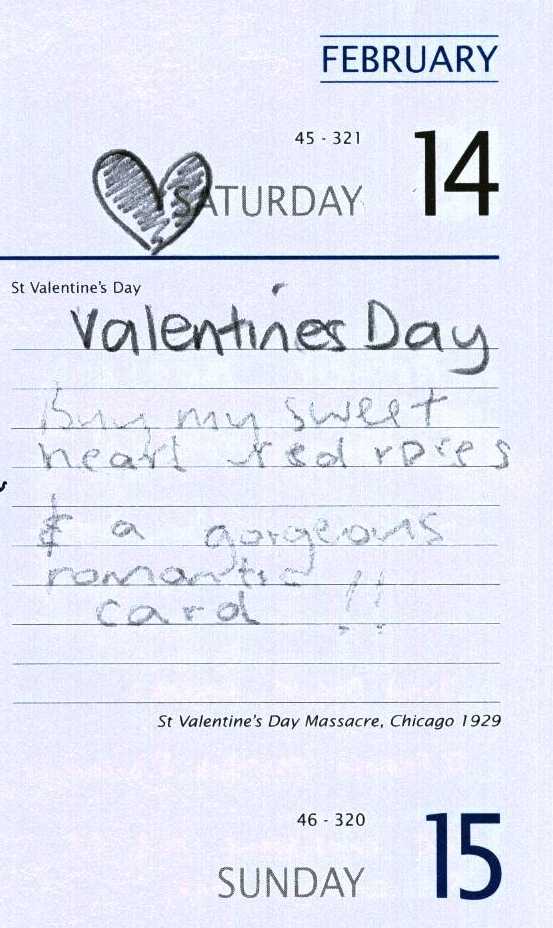 FEBRUARY
45 - 321
14
SATURDAY
St Valentine's Day
Valentines Day
Buy my sweet
heart red roses
& a gorgeous
romantic
card !!
St Valentine's Day Massacre, Chicago 1929
46 - 320
15
SUNDAY